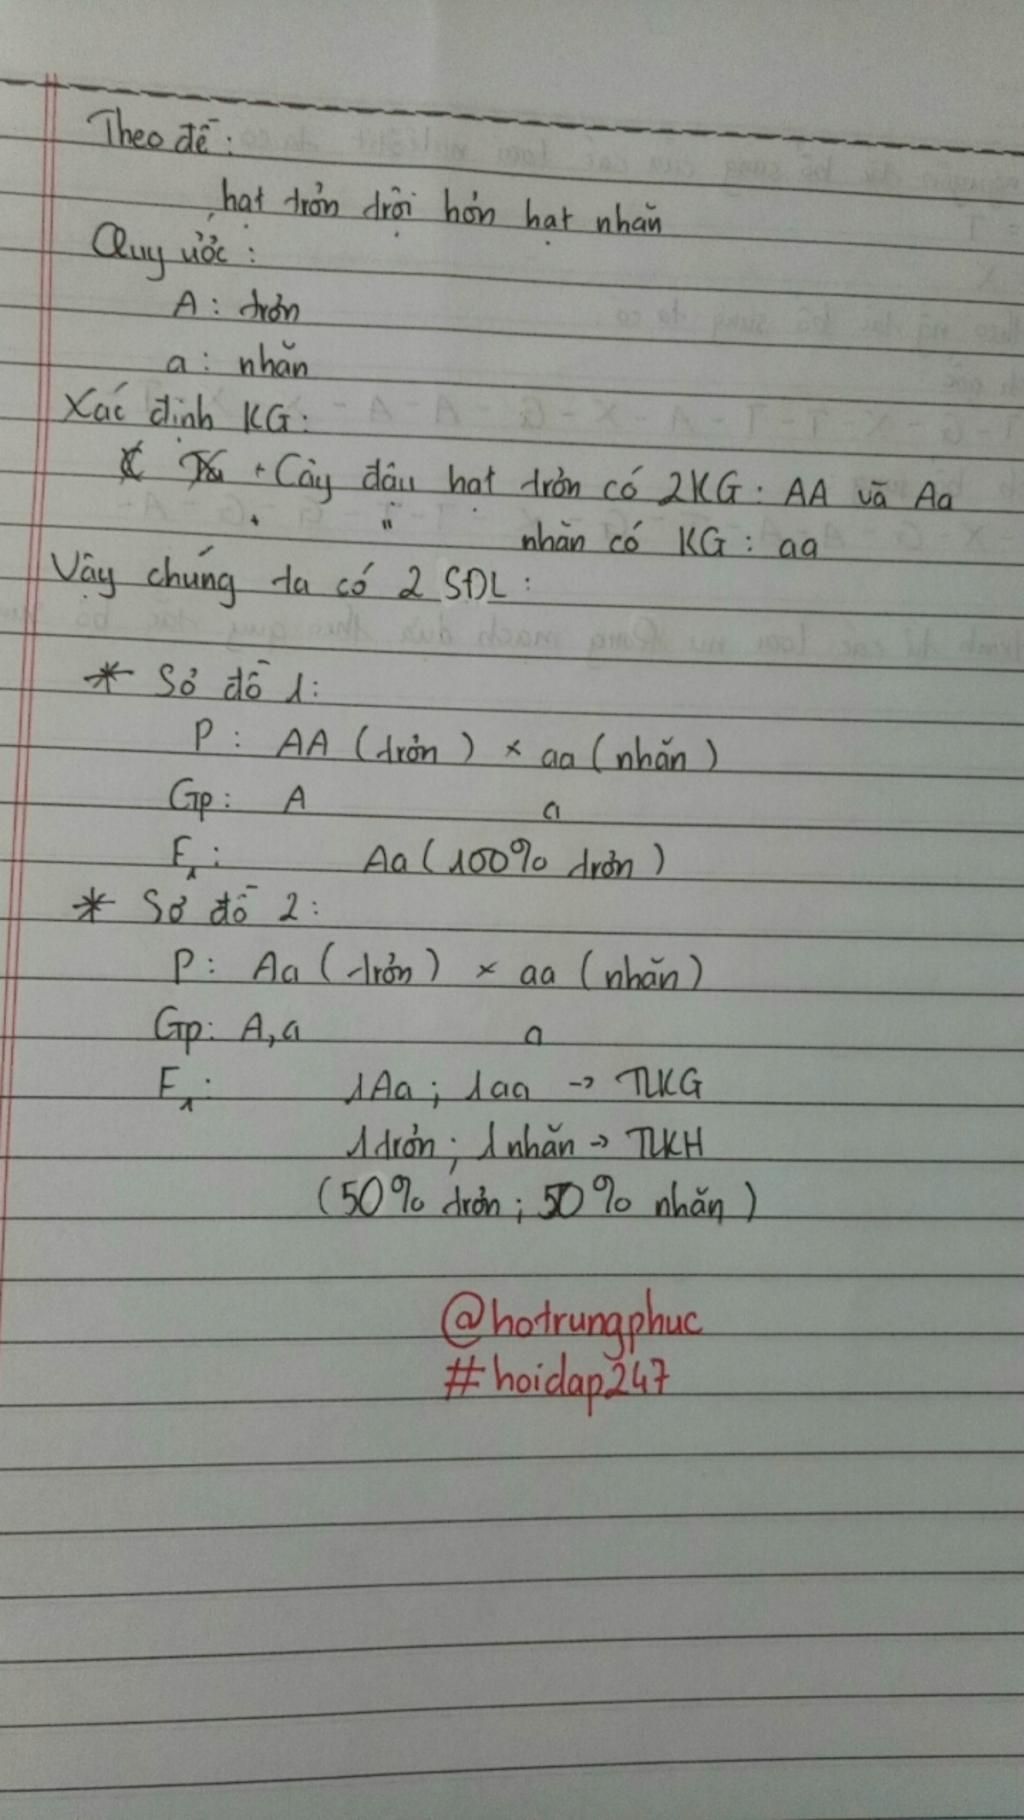 Theo đề:
hạt trơn trội hơn hạt nhăn
Quy ước:
A: trơn
a: nhăn
Xác định KG:
+ Cây đậu hạt trơn có 2KG: AA và Aa
" nhăn có KG: aa
Vậy chúng ta có 2 SĐL:
* Sơ đồ 1:
P: AA (trơn) × aa (nhăn)
Gp: A a
F1: Aa (100% trơn)
* Sơ đồ 2:
P: Aa (trơn) × aa (nhăn)
Gp: A,a a
F1: 1Aa; 1aa → TLKG
1 trơn; 1 nhăn → TLKH
(50% trơn; 50% nhăn)
@hotrungphuc
#hoidap247